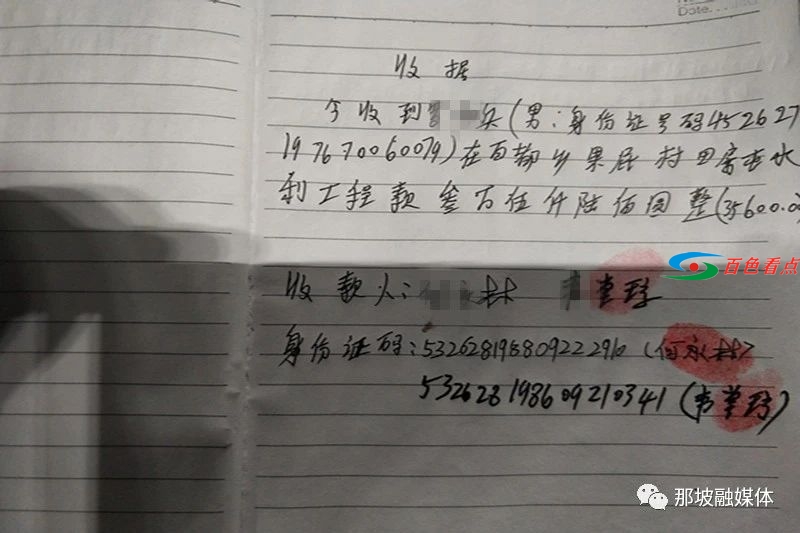 Date
收据
今收到 兵(男:身份证号码452627
197670060079)在百都乡果尾村田房屯水
利工程款叁万伍仟陆佰圆整(35600.0
百色看点
收款人: 林
身份证码:532628198809222910(何永林)
532628198609210341(韦 )
那坡融媒体